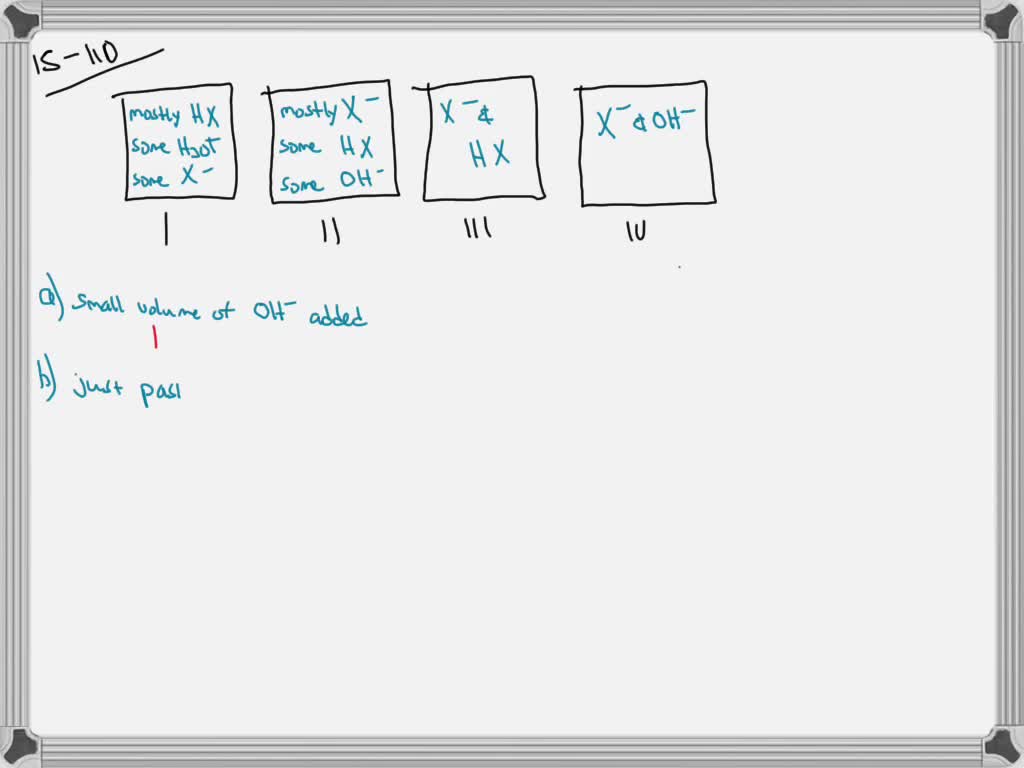 15-110
mostly HX
some H3O+
some X-
I
mostly X-
some HX
some OH-
II
X- &
HX
III
X- & OH-
IV
a) small volume of OH- added
I
b) just past